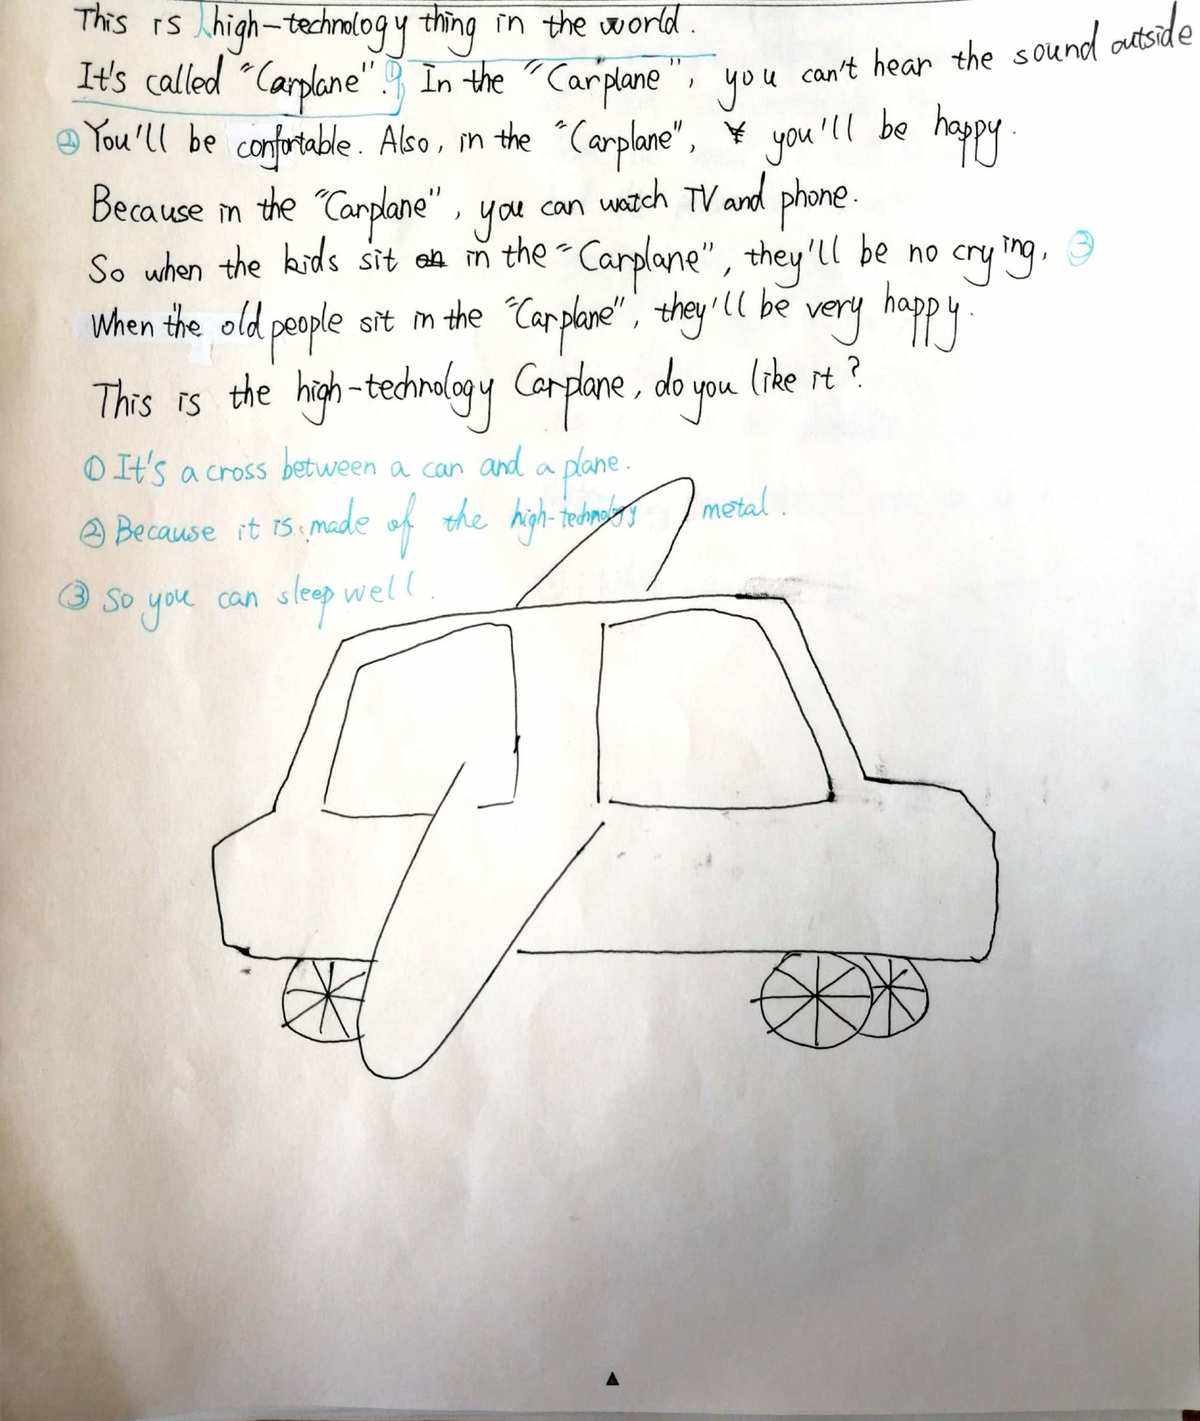 This is high-technology thing in the world.
It's called "Carplane". ① In the "Carplane", you can't hear the sound outside
② You'll be confortable. Also, in the "Carplane", you'll be happy.
Because in the "Carplane", you can watch TV and phone.
So when the kids sit in the "Carplane", they'll be no crying. ③
When the old people sit in the "Carplane", they'll be very happy.
This is the high-technology Carplane, do you like it?
① It's a cross between a can and a plane.
② Because it is made of the high-technology metal.
③ So you can sleep well.